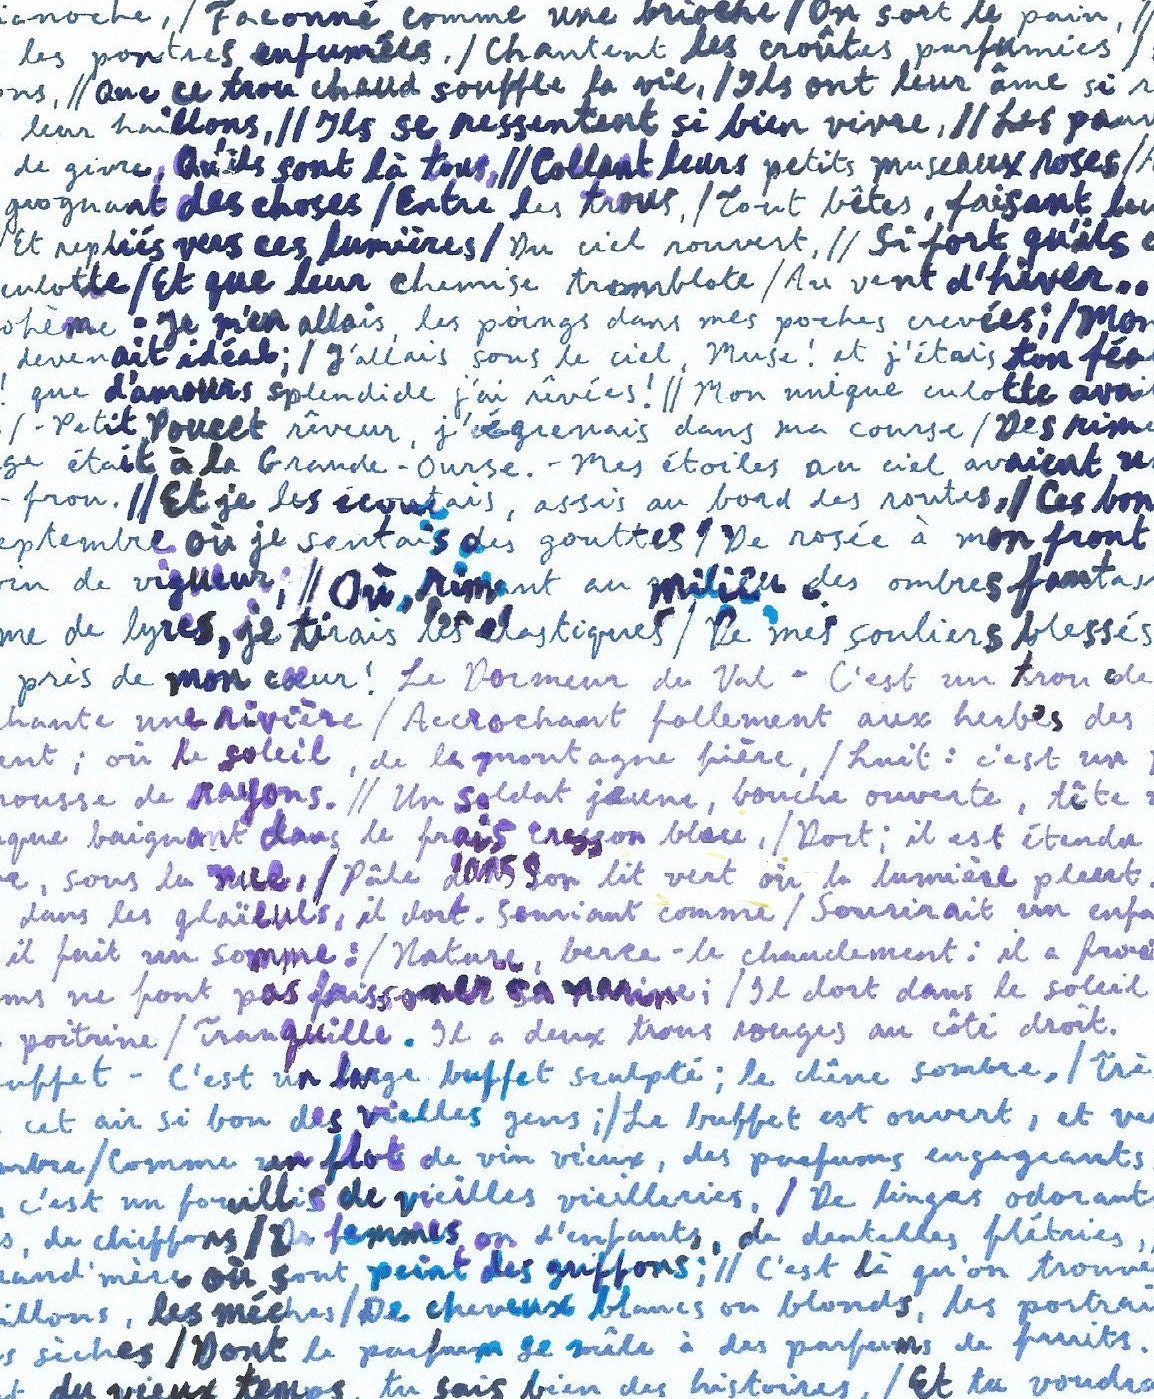 ianoche, / Façonné comme une brioche / On sort le pain, //
les poutres enfumées, / Chantent les croûtes parfumées /
ons, // Que ce trou chaud souffle la vie, / Ils ont leur âme si r
leur haillons, // Ils se ressentent si bien vivre, // Les pauv
de givre, Qu'ils sont là tous, // Collant leurs petits museaux roses /
grognant des choses / Entre les trous, / Tout bêtes, faisant leu
/ Et repliés vers ces lumières / Du ciel rouvert, // Si fort qu'ils c
culotte / Et que leur chemise tremblote / Au vent d'hiver...
ohème - Je m'en allais, les poings dans mes poches crevées; / Mon
devenait idéal; / J'allais sous le ciel, Muse! et j'étais ton féa
! que d'amours splendide j'ai rêvées! // Mon unique culotte avai
/ - Petit Poucet rêveur, j'égrenais dans ma course / Des rime
ge était à la Grande-Ourse. - Mes étoiles au ciel avaient un
- frou. // Et je les écoutais, assis au bord des routes, / Ces bon
eptembre où je sentais des gouttes / De rosée à mon front
vin de vigueur; // Où, rimant au milieu des ombres fantas
me de lyres, je tirais les élastiques / De mes souliers blessés
près de mon cœur! Le Dormeur du Val - C'est un trou de
chante une rivière / Accrochant follement aux herbes des
ent ; où le soleil, de la montagne fière, / Luit : c'est un
mousse de rayons. // Un soldat jeune, bouche ouverte, tête
uque baignant dans le frais cresson bleu, / Dort; il est étendu
e, sous la nue, / Pâle dans son lit vert où la lumière pleut.
dans les glaïeuls, il dort. Souriant comme / Sourirait un enfa
il fait un somme : / Nature, berce-le chaudement : il a froid
ums ne font pas frissonner sa narine; / Il dort dans le soleil
poitrine / Tranquille. Il a deux trous rouges au côté droit.
uffet - C'est un large buffet sculpté; le chêne sombre, / Trè
cet air si bon des vieilles gens; / Le buffet est ouvert, et ve
ombre / Comme un flot de vin vieux, des parfums engageants
, c'est un fouillis de vieilles vieilleries, / De linges odorants
s, de chiffons / De femmes ou d'enfants, de dentelles flétries,
rand'mère où sont peint des griffons; // C'est là qu'on trouve
aillons, les mèches / De cheveux blancs ou blonds, les portrai
s sèches / Dont le parfum se mêle à des parfums de fruits.
t du vieux temps, tu sais bien des histoires, / Et tu voudra